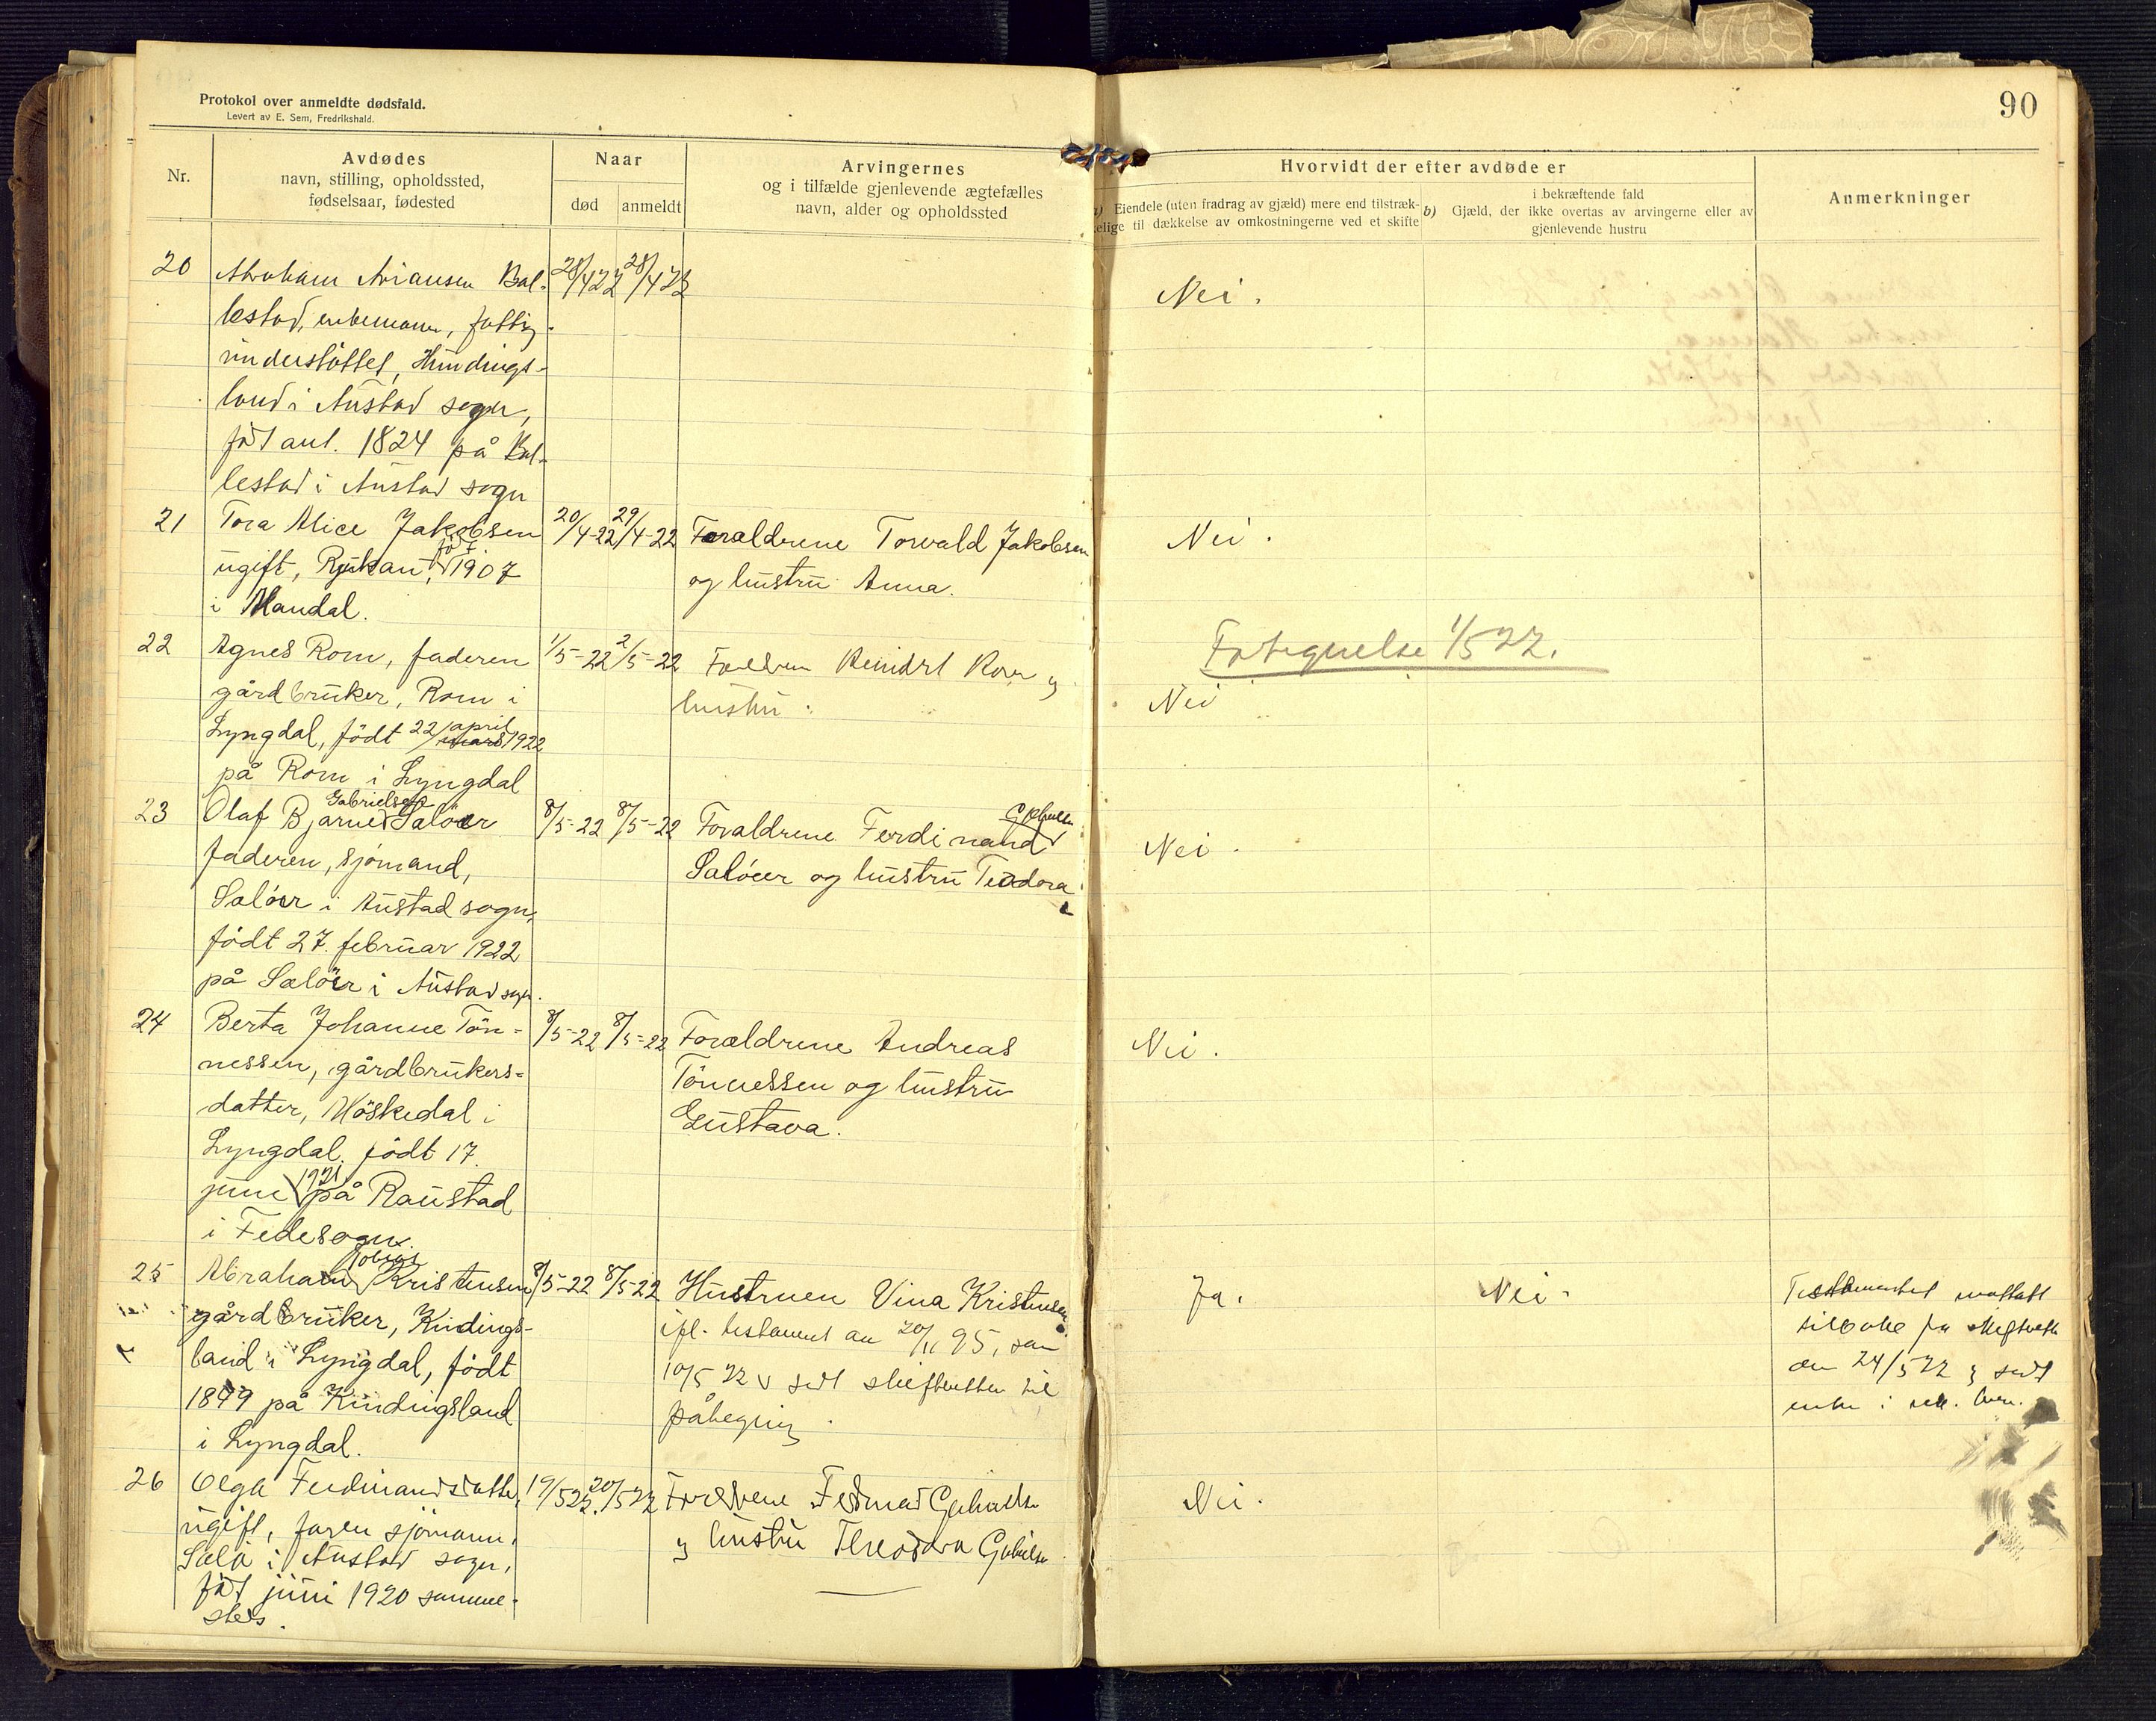 Protokol over anmeldte dødsfald.
Levert av E. Sem, Fredrikshald.
90
Nr.
Avdødes
navn, stilling, opholdssted,
fødselsaar, fødested
Naar
død
anmeldt
Arvingernes
og i tilfælde gjenlevende ægtefælles
navn, alder og opholdssted
Hvorvidt der efter avdøde er
a) Eiendele (uten fradrag av gjæld) mere end tilstræk-
kelige til dækkelse av omkostningerne ved et skifte
i bekræftende fald
b) Gjæld, der ikke overtas av arvingerne eller av
gjenlevende hustru
Anmerkninger
20
Abraham Ariansen Bal-
lestad, enkemann, fattig-
understöttet, Hundings-
land i Austad sogn,
född ant. 1824 på Bal-
lestad i Austad sogn
28/4 22
28/4 22
Nei.
21
Tora Alice Jakobsen
ugift, Rjukan, född 1907
i Mandal.
20/4-22
29/4-22
Forældrene Torvald Jakobsen
og hustru Anna.
Nei.
22
Agnes Rom, faderen
gårdbruker, Rom i
Lyngdal, født 22/april mars 1922
på Rom i Lyngdal
1/5-22
2/5-22
Foreldren Reindrt Rom og
hustru.
Fortegnelse 1/5 22.
Nei
23
Olaf Bjarne Gabrielsen Salöer
faderen, sjömand,
Salöer i Austad sogn,
født 27. februar 1922
på Salöer i Austad sogn.
8/5-22
8/5-22
Forældrene Ferdinand
Salöer og hustru Teodora
Nei.
24
Berta Johanne Tön-
nessen, gårdbrukers-
datter, Möskedal i
Lyngdal, født 17.
juni 1921 på Raustad
i Fedesogn.
8/5-22
8/5-22
Forældrene Andreas
Tönnessen og hustru
Gustava.
Nei.
25
Abraham Tobias Kristensen
gårdbruker, Kindings-
land i Lyngdal, født
1849 på Kindingsland
i Lyngdal.
8/5-22
8/5-22
Hustruen Vina Kristensen
ifl. testament av 20/11 95, som
10/5 22 sedt skifteretten til
påtegning.
Ja.
Nei.
Testamentet mottatt
tilbake fra skifteretten
den 24/5 22 og sedt
enken i rek. brev.
26
Olga Ferdinandsdatter,
ugift, faren sjömann,
Salö i Austad sogn,
född juni 1920 samme-
steds.
19/5 22.
20/5 22
Foreldrene Ferdinad Gabrielsen
og hustru Theodora Gabrielsen
Nei.